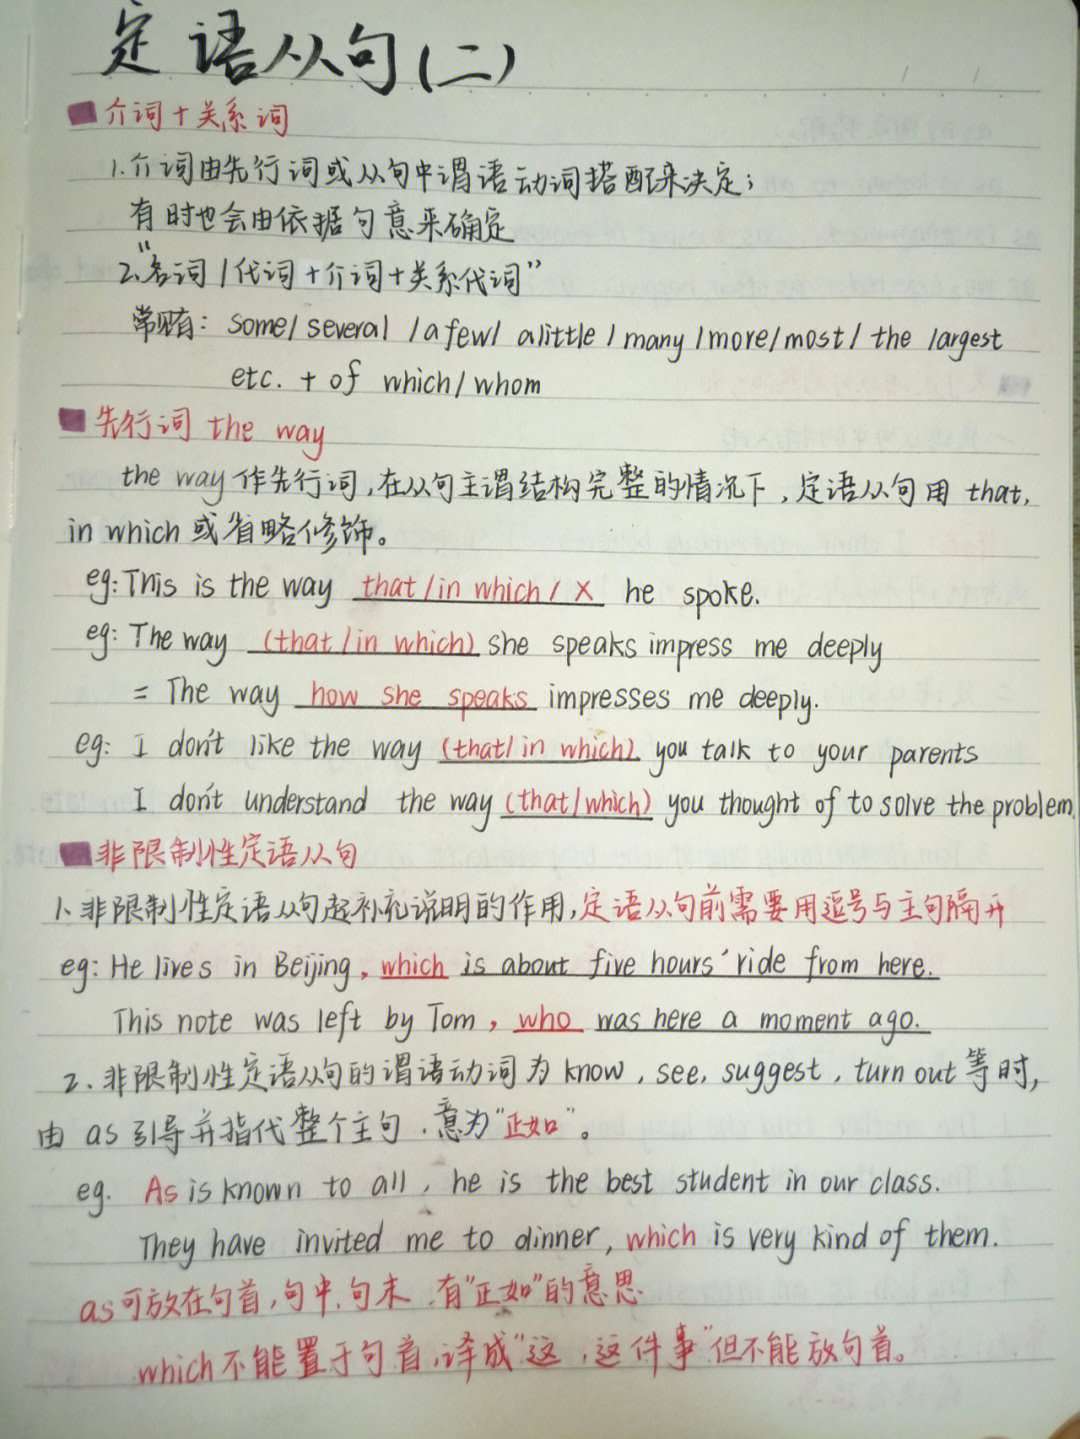 定语从句(二)
介词+关系词
1.介词由先行词或从句中谓语动词搭配来决定;
有时也会由依据句意来确定
2."名词/代词+介词+关系代词"
常见有: some/several/a few/a little/many/more/most/the largest
etc. + of which/whom
先行词 the way
the way作先行词,在从句主谓结构完整的情况下,定语从句用 that,
in which或省略修饰。
eg: This is the way that/in which/X he spoke.
eg: The way (that/in which) she speaks impress me deeply
= The way how she speaks impresses me deeply.
eg: I don't like the way (that/in which) you talk to your parents
I don't understand the way (that/which) you thought of to solve the problem.
非限制性定语从句
1、非限制性定语从句起补充说明的作用,定语从句前需要用逗号与主句隔开
eg: He lives in Beijing, which is about five hours' ride from here.
This note was left by Tom, who was here a moment ago.
2、非限制性定语从句的谓语动词为 know, see, suggest, turn out等时,
由 as 引导并指代整个主句,意为"正如"。
eg. As is known to all, he is the best student in our class.
They have invited me to dinner, which is very kind of them.
as可放在句首,句中,句末,有"正如"的意思
which不能置于句首,译成"这,这件事"但不能放句首。